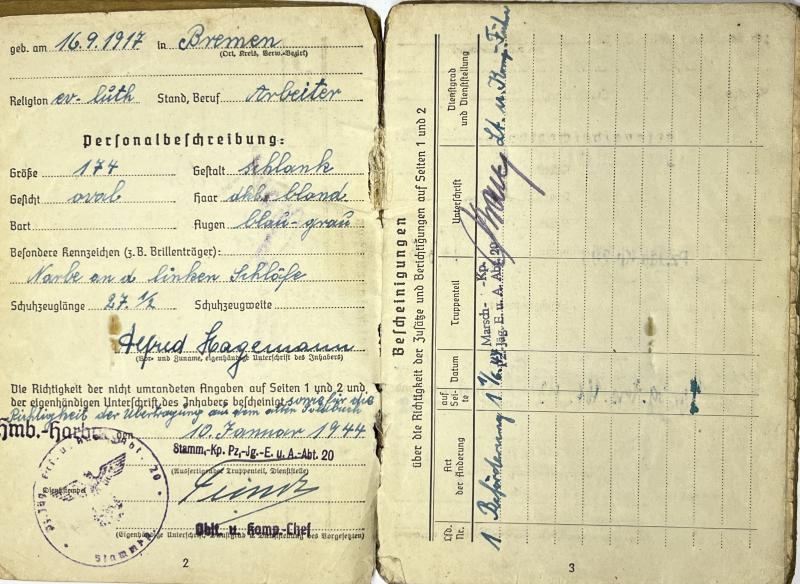 geb. am 16.9.1917 in Bremen
(Ort, Kreis, Verw.-Bezirk)
Religion ev-luth Stand, Beruf Arbeiter
Personalbeschreibung:
Größe 174 Gestalt schlank
Gesicht oval Haar dkl. blond
Bart Augen blau-grau
Besondere Kennzeichen (z.B. Brillenträger):
Narbe an d linken Schläfe
Schuhzeuglänge 27 ½ Schuhzeugweite
Alfred Hagemann
(Vor- und Zuname, eigenhändige Unterschrift des Inhabers)
Die Richtigkeit der nicht umrandeten Angaben auf Seiten 1 und 2 und
der eigenhändigen Unterschrift des Inhabers bescheinigt sowie für die
Richtigkeit der Übertragung aus dem alten Soldbuch
Hmb.-Harburg, den 10. Januar 1944
Stamm.-Kp. Pz.-Jg.-E. u. A.-Abt. 20
(Ausfertigender Truppenteil, Dienststelle)
Dienststempel
Oblt. u. Komp.-Chef
(Eigenhändige Unterschrift, Dienstgrad u. Dienststellung des Vorgesetzten)
2
Bescheinigungen
über die Richtigkeit der Zusätze und Berichtigungen auf Seiten 1 und 2
Lfd. Nr.
Art der Änderung
auf Seite
Datum
Truppenteil
Unterschrift
Dienstgrad und Dienststellung
1. Beförderung 1
Marsch- -Kp.
Pz. Jäg. E. u. A. Abt. 20
Lt. u. Komp.
3